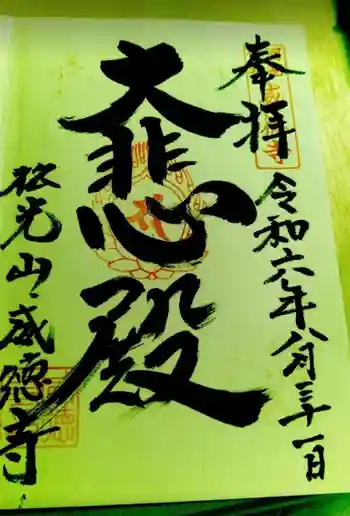 奉拝
令和六年八月三十一日
大悲心殿
松光山威徳寺